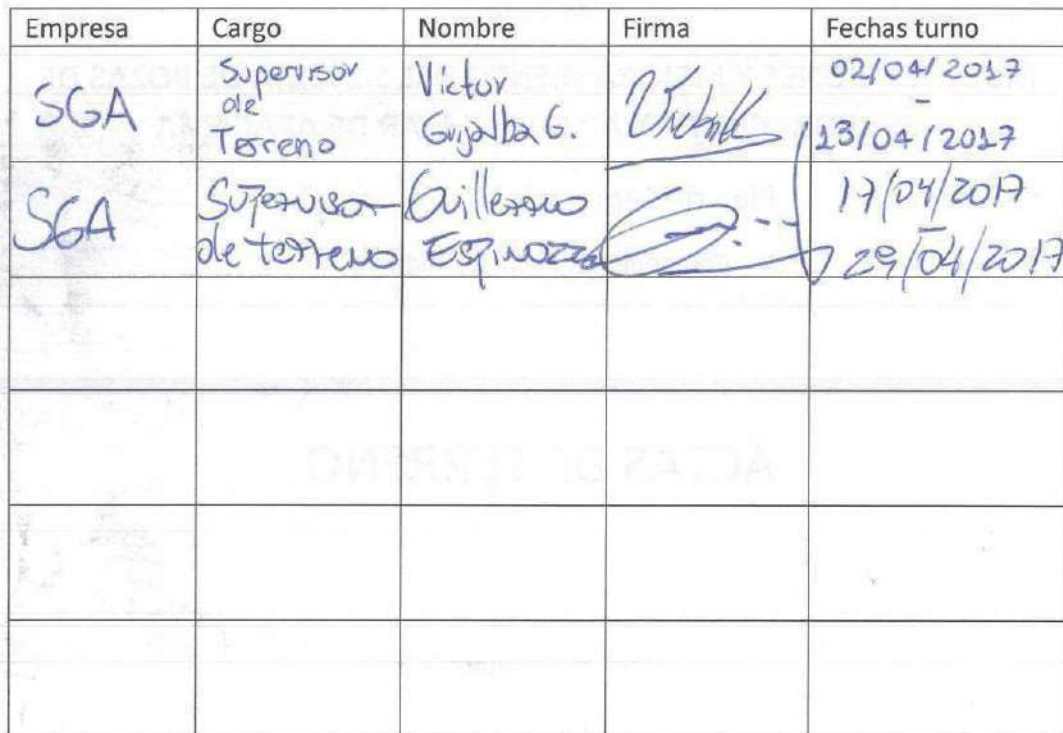 Empresa Cargo Nombre Firma Fechas turno
SGA Supervisor de Terreno Victor Grijalba G. 02/04/2017 - 13/04/2017
SGA Supervisor de terreno Guillermo Espinozza 17/04/2017 - 29/04/2017
ACTAS DE TERRENO